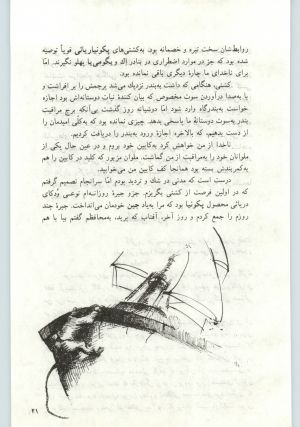 روابطشان سخت تیره و خصمانه بود. به‌کشتی‌های پکونیاریائی قویاً توصیه
شده بود که جز در موارد اضطراری در بنادر اِك و یگومی‌یا پهلو نگیرند. امّا
برای ناخدای ما چارهٔ دیگری باقی نمانده بود.
کشتی، هنگامی که داشت به‌بندر نزدیك می‌شد پرچمش را بر افراشت و
با به‌صدا درآوردن سوت مخصوص که بیان کنندهٔ نیات دوستانه‌اش بود اجازه
خواست به‌بندرگاه وارد شود امّا دوشبانه روز گذشت بی‌آنکه برج مراقبت
بندر به‌سوت دوستانهٔ ما پاسخی بدهد. چیزی نمانده بود که به‌کلّی امیدمان را
از دست بدهیم، که بالاخره اجازهٔ ورود به‌بندر را دریافت کردیم.
ناخدا از من خواهش کرد به‌کابین خود بروم و در عین حال یکی از
ملوانان خود را به‌مراقبت از من گماشت. ملوان مزبور که کلید در کابین را هم
به‌کمربندش بسته بود همانجا کف کابین من می‌خوابید.
درست است که مدتی در شك و تردید بودم امّا سرانجام تصمیم گرفتم
که در اولین فرصت از کشتی بگریزم. جزو جیرهٔ روزانه‌ام نوعی وُدکای
دریائی محصول پکونیا بود که مرا به‌یاد جین خودمان می‌انداخت. جیرهٔ چند
روزم را جمع کردم و روز آخر، آفتابی که پرید، به‌محافظم گفتم بیا با هم
۲۱